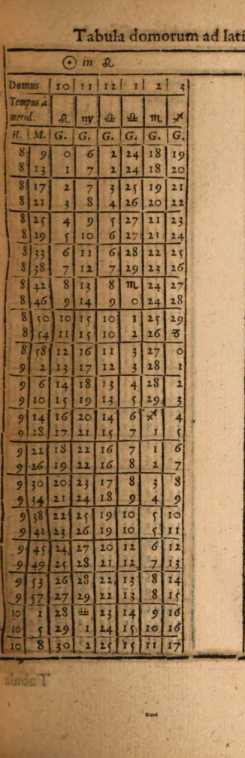 Tabula domorum ad lati
☉ in ♌
Domus 10 11 12 1 2 3
Tempus à
merid. ♌ ♍ ♎ ♎ ♏ ♐
H. M. G. G. G. G. G. G.
8 9 0 6 2 24 18 19
8 13 1 7 2 24 18 20
8 17 2 7 3 25 19 21
8 21 3 8 4 26 20 22
8 25 4 9 5 27 21 23
8 29 5 10 6 27 21 24
8 33 6 11 6 28 22 25
8 38 7 12 7 29 23 26
8 42 8 13 8 ♏ 24 27
8 46 9 14 9 0 24 28
8 50 10 15 10 1 25 29
8 54 11 15 10 2 26 ♑
8 58 12 16 11 3 27 0
9 2 13 17 12 3 28 1
9 6 14 18 13 4 28 2
9 10 15 19 13 5 29 3
9 14 16 20 14 6 ♐ 4
9 18 17 21 15 7 1 5
9 22 18 22 16 7 1 6
9 26 19 22 16 8 2 7
9 30 20 23 17 8 3 8
9 34 21 24 18 9 4 9
9 38 22 25 19 10 5 10
9 41 23 26 19 10 5 11
9 45 24 27 20 12 6 12
9 49 25 28 21 12 7 13
9 53 26 28 22 13 8 14
9 57 27 29 22 13 8 15
10 1 28 ♎ 23 14 9 16
10 5 29 1 24 15 10 16
10 8 30 2 25 15 11 17